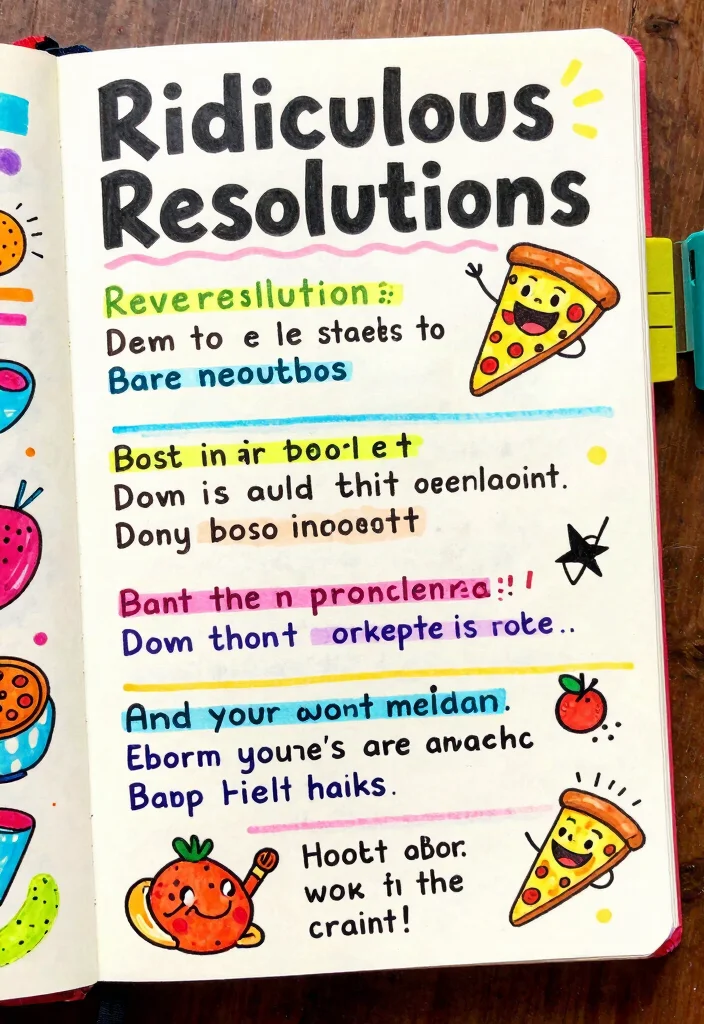 Ridiculous
Resolutions
Reveresllution
Dem to e le staebs to
Bare neoutbos
Bost in ir bool et
Dovn is auld thit oeenlaoint.
Dony boso inooeott
Bant the n pronclenra!!!
Dom thont orkepte is rote..
And your wont meidan.
Eborm youre's are anvachc
Baop Hielt haiks.
Hooct aBor.
wok fi the
craint!